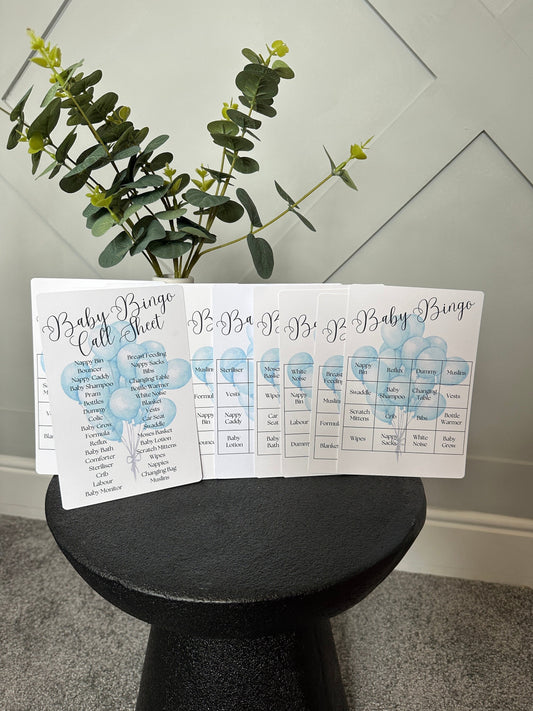 Baby Bingo
Call Sheet
Nappy Bin
Bouncer
Nappy Caddy
Baby Shampoo
Pram
Bottles
Dummy
Colic
Baby Grow
Formula
Reflux
Baby Bath
Comforter
Steriliser
Crib
Labour
Baby Monitor
Breast Feeding
Nappy Sacks
Bibs
Changing Table
Bottle Warmer
White Noise
Blanket
Vests
Car Seat
Swaddle
Moses Basket
Baby Lotion
Scratch Mittens
Wipes
Nappies
Changing Bag
Muslins
Muslins
Formula
Nappy Bin
Labour
Ba
Steriliser
Vests
Nappy Caddy
Baby Lotion
Ba
Moses Basket
Car Seat
Baby Bath
Ba
White Noise
Labour
Dummy
Ba
Breast Feeding
Formula
Blanket
Baby Bingo
Nappy Bin
Reflux
Dummy
Muslins
Swaddle
Baby Shampoo
Changing Table
Vests
Scratch Mittens
Crib
Bibs
Bottle Warmer
Wipes
Nappy Sacks
White Noise
Baby Grow